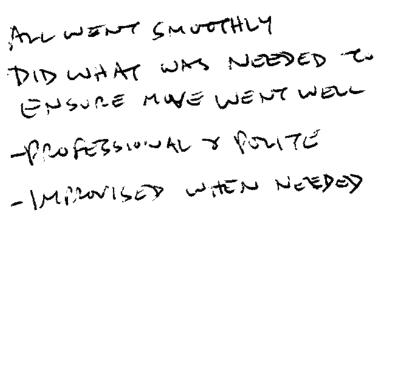 ALL WENT SMOOTHLY
DID WHAT WAS NEEDED TO
ENSURE MOVE WENT WELL
-PROFESSIONAL & POLITE
-IMPROVISED WHEN NEEDED